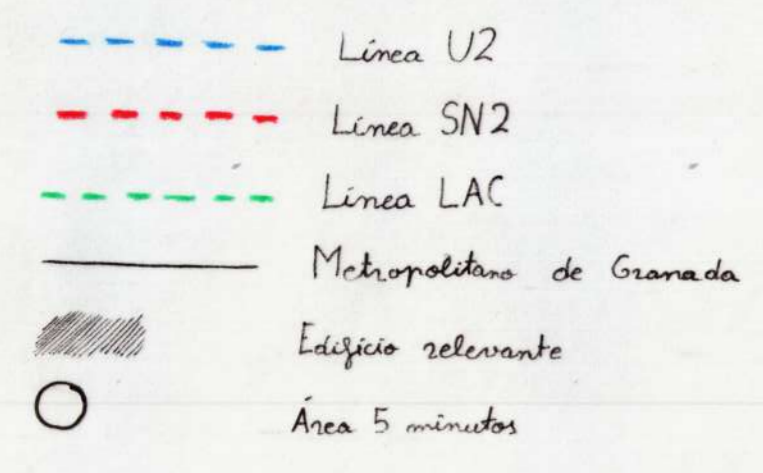 Línea U2
Línea SN2
Línea LAC
Metropolitano de Granada
Edificio relevante
Área 5 minutos